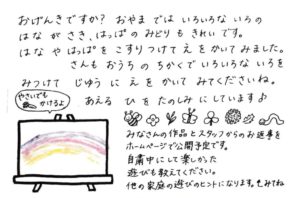 おげんきですか？ おやま では いろいろな いろの
はな が さき、はっぱの みどり も きれい です。
はな や はっぱ を こすり つけて え を かいて みました。
さんも おうちの ちかくで いろいろな いろを
みつけて じゆう に え を かいて みてくださいね。
あえる ひ を たのしみ に しています♪
やさいでも
かけるよ
みなさんの作品とスタッフからのお返事を
ホームページで公開予定です。
自粛中にして楽しかった
遊びも教えてください。
他の家庭の遊びのヒントになります。